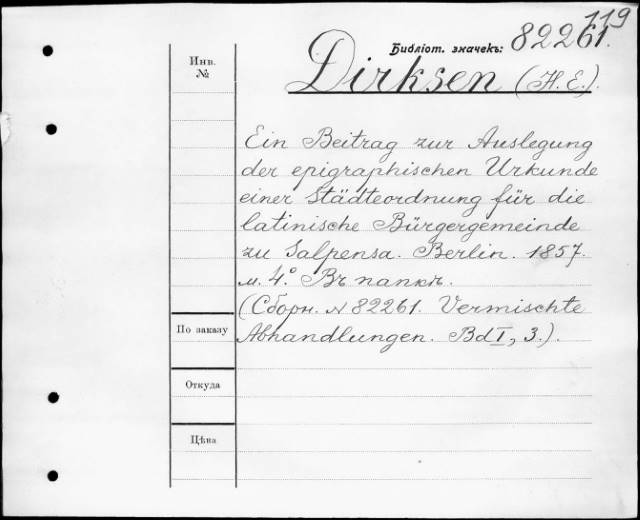 119
Библіот. значекъ: 82261.
Инв.
№
Dirksen (H. E.).
Ein Beitrag zur Auslegung
der epigraphischen Urkunde
einer Städteordnung für die
latinische Bürgergemeinde
zu Salpensa. Berlin. 1857.
м. 4.° Въ папкѣ.
(Сборн. № 82261. Vermischte
Abhandlungen. Bd I, 3.).
По заказу
Откуда
Цѣна